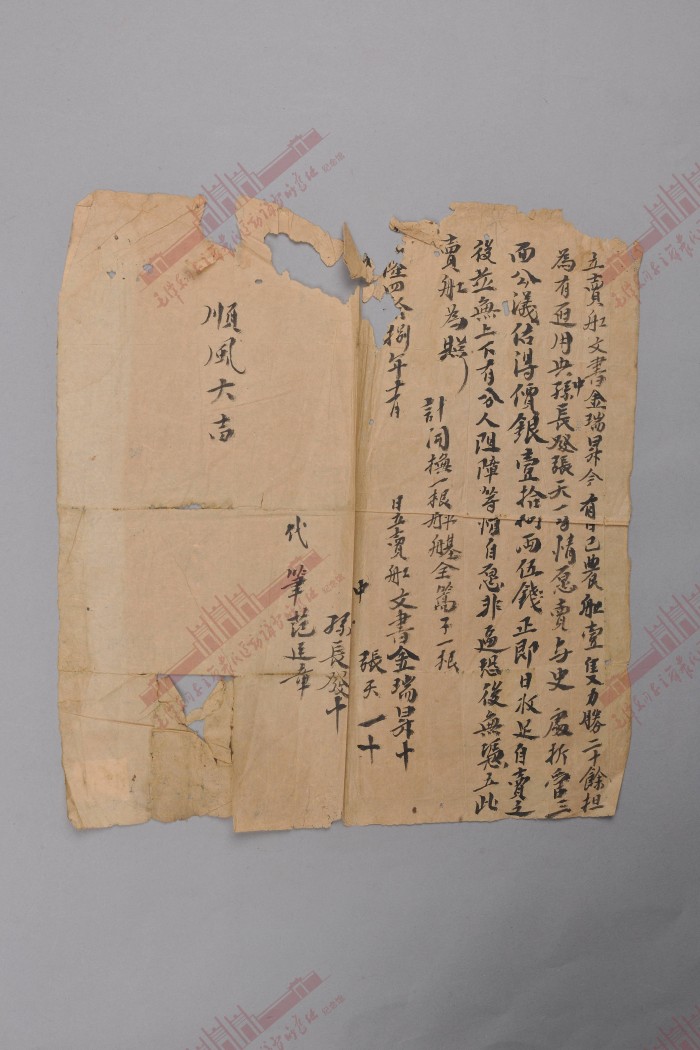 立賣船文書金瑞昇今有自己農船壹隻力勝二十餘担
為有通用央中孫長發張天一等情愿賣与史處折當三
面公議估得價銀壹拾兩伍錢正即日收足自賣之
後並無上下有分人阻障等情自愿非逼恐後無憑立此
賣船為照
計開櫓一根 全篙子一根
隆四拾捌年 月 日立賣船文書金瑞昇十
中 張天一十
孫長發十
代筆范廷章
順風大吉